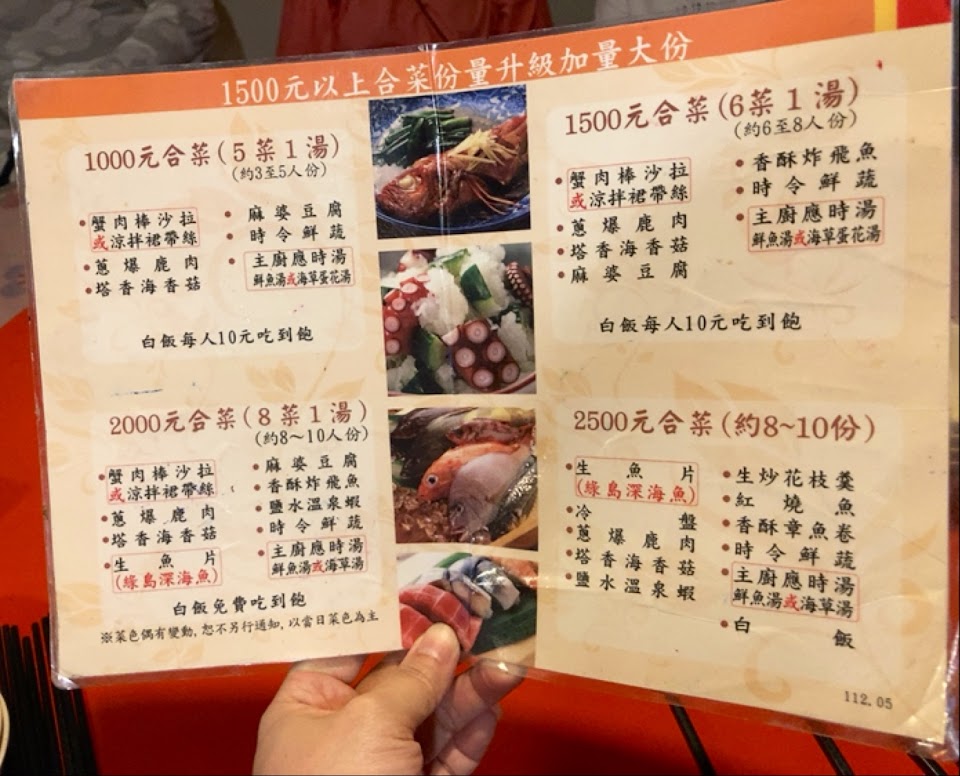 1500元以上合菜份量升級加量大份
1000元合菜(5菜1湯)
(約3至5人份)
蟹肉棒沙拉
或涼拌裙帶絲
蔥爆鹿肉
塔香海香菇
麻婆豆腐
時令鮮蔬
主廚應時湯
鮮魚湯或海草蛋花湯
白飯每人10元吃到飽
1500元合菜(6菜1湯)
(約6至8人份)
蟹肉棒沙拉
或涼拌裙帶絲
蔥爆鹿肉
塔香海香菇
麻婆豆腐
香酥炸飛魚
時令鮮蔬
主廚應時湯
鮮魚湯或海草蛋花湯
白飯每人10元吃到飽
2000元合菜(8菜1湯)
(約8～10人份)
蟹肉棒沙拉
或涼拌裙帶絲
蔥爆鹿肉
塔香海香菇
生魚片
(綠島深海魚)
麻婆豆腐
香酥炸飛魚
鹽水溫泉蝦
時令鮮蔬
主廚應時湯
鮮魚湯或海草湯
白飯免費吃到飽
※菜色偶有變動,恕不另行通知,以當日菜色為主
2500元合菜(約8~10份)
生魚片
(綠島深海魚)
冷盤
蔥爆鹿肉
塔香海香菇
鹽水溫泉蝦
生炒花枝羹
紅燒魚
香酥章魚卷
時令鮮蔬
主廚應時湯
鮮魚湯或海草湯
白飯
112.05